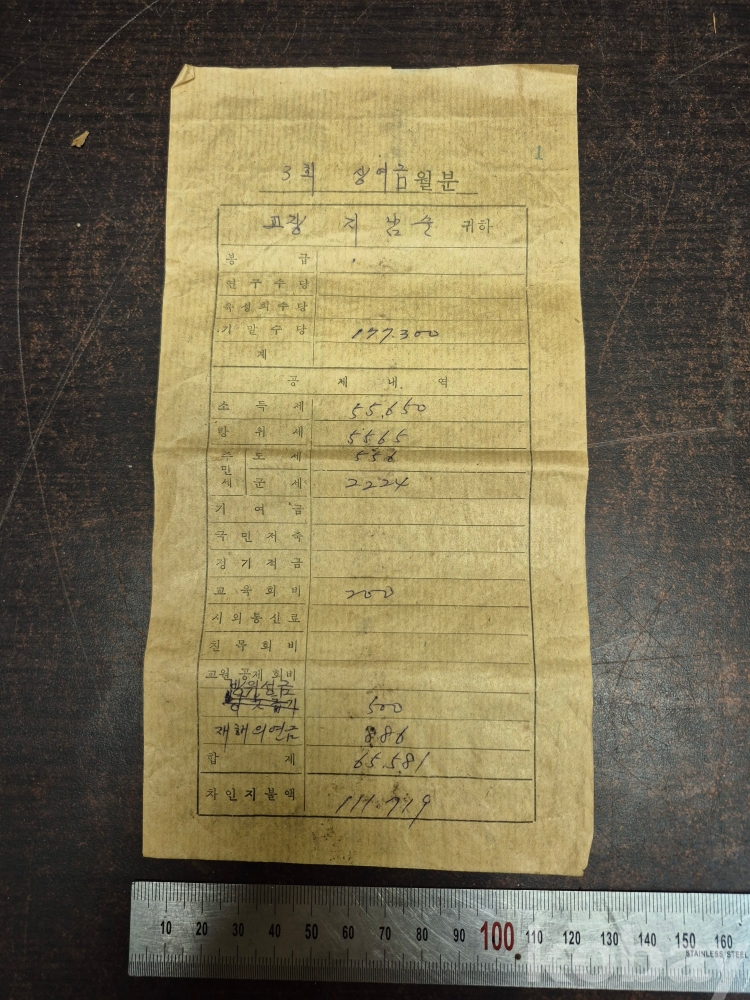 1
3회 상여금월분
교장 지남순 귀하
봉급
연구수당
육성회수당
기말수당 177.300
계
공제내역
소득세 55.650
방위세 5565
주민세 도세 556
군세 2224
기여금
국민저축
정기적금
교육회비 200
시외통신료
친목회비
교원공제회비
방위성금 500
재해의연금 886
합계 65.581
차인지불액 111.719
10 20 30 40 50 60 70 80 90 100 110 120 130 140 150 160
STAINLESS STEEL
kobay